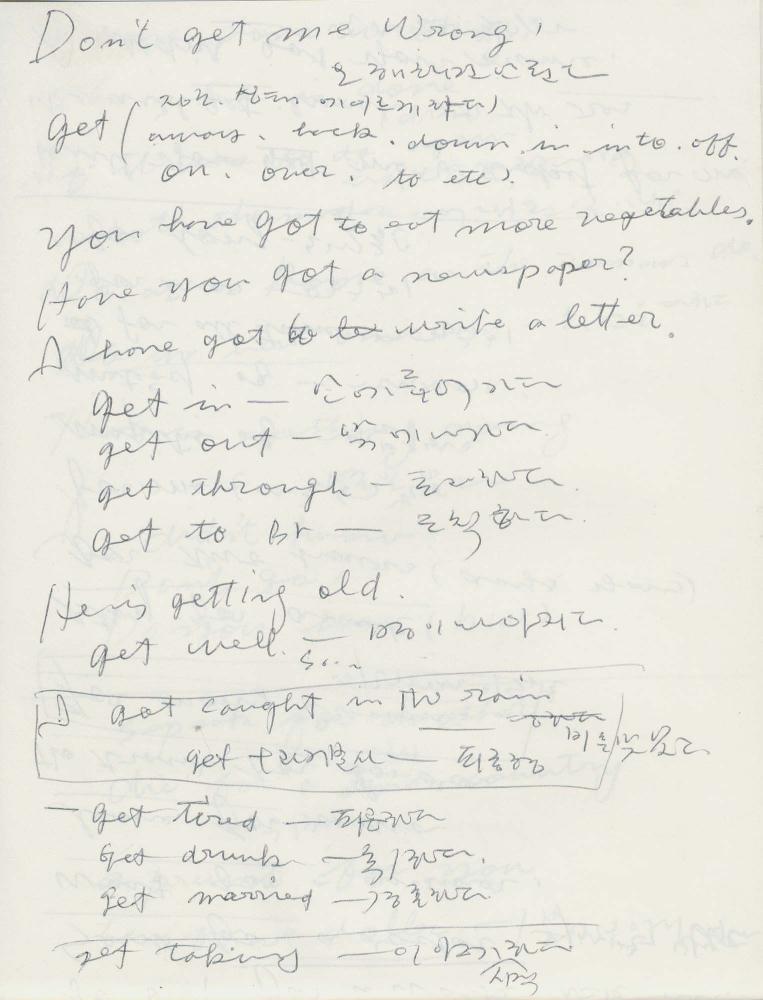 Don't get me Wrong!
오해하지마십시요
get (장소. 상태 에이르게하다)
away. back. down. in into. off.
on. over. to etc).
You have got to eat more vegetables.
Have you got a newspaper?
I have got to write a letter.
get in — 안에들어가다
get out — 밖에나가다
get through — 통과하다
get to Br — 도착하다.
He is getting old.
get well. — 병이 나아지다.
I got caught in the rain
비를 맞았다
get + 과거분사 — 피동형
— get tired — 피곤하다
get drunk — 취하다.
get married — 결혼하다
get talking — 이야기하다
시작